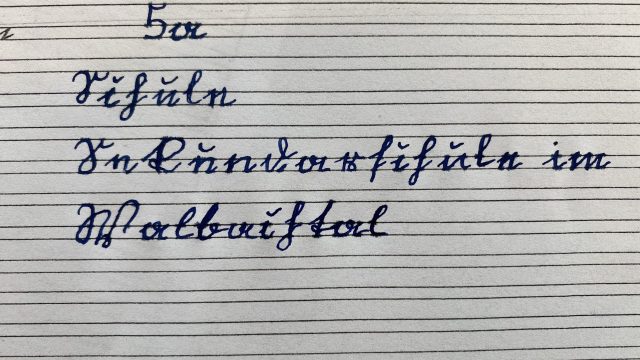 5a
Schule
Sekundarschule im
Walbachtal